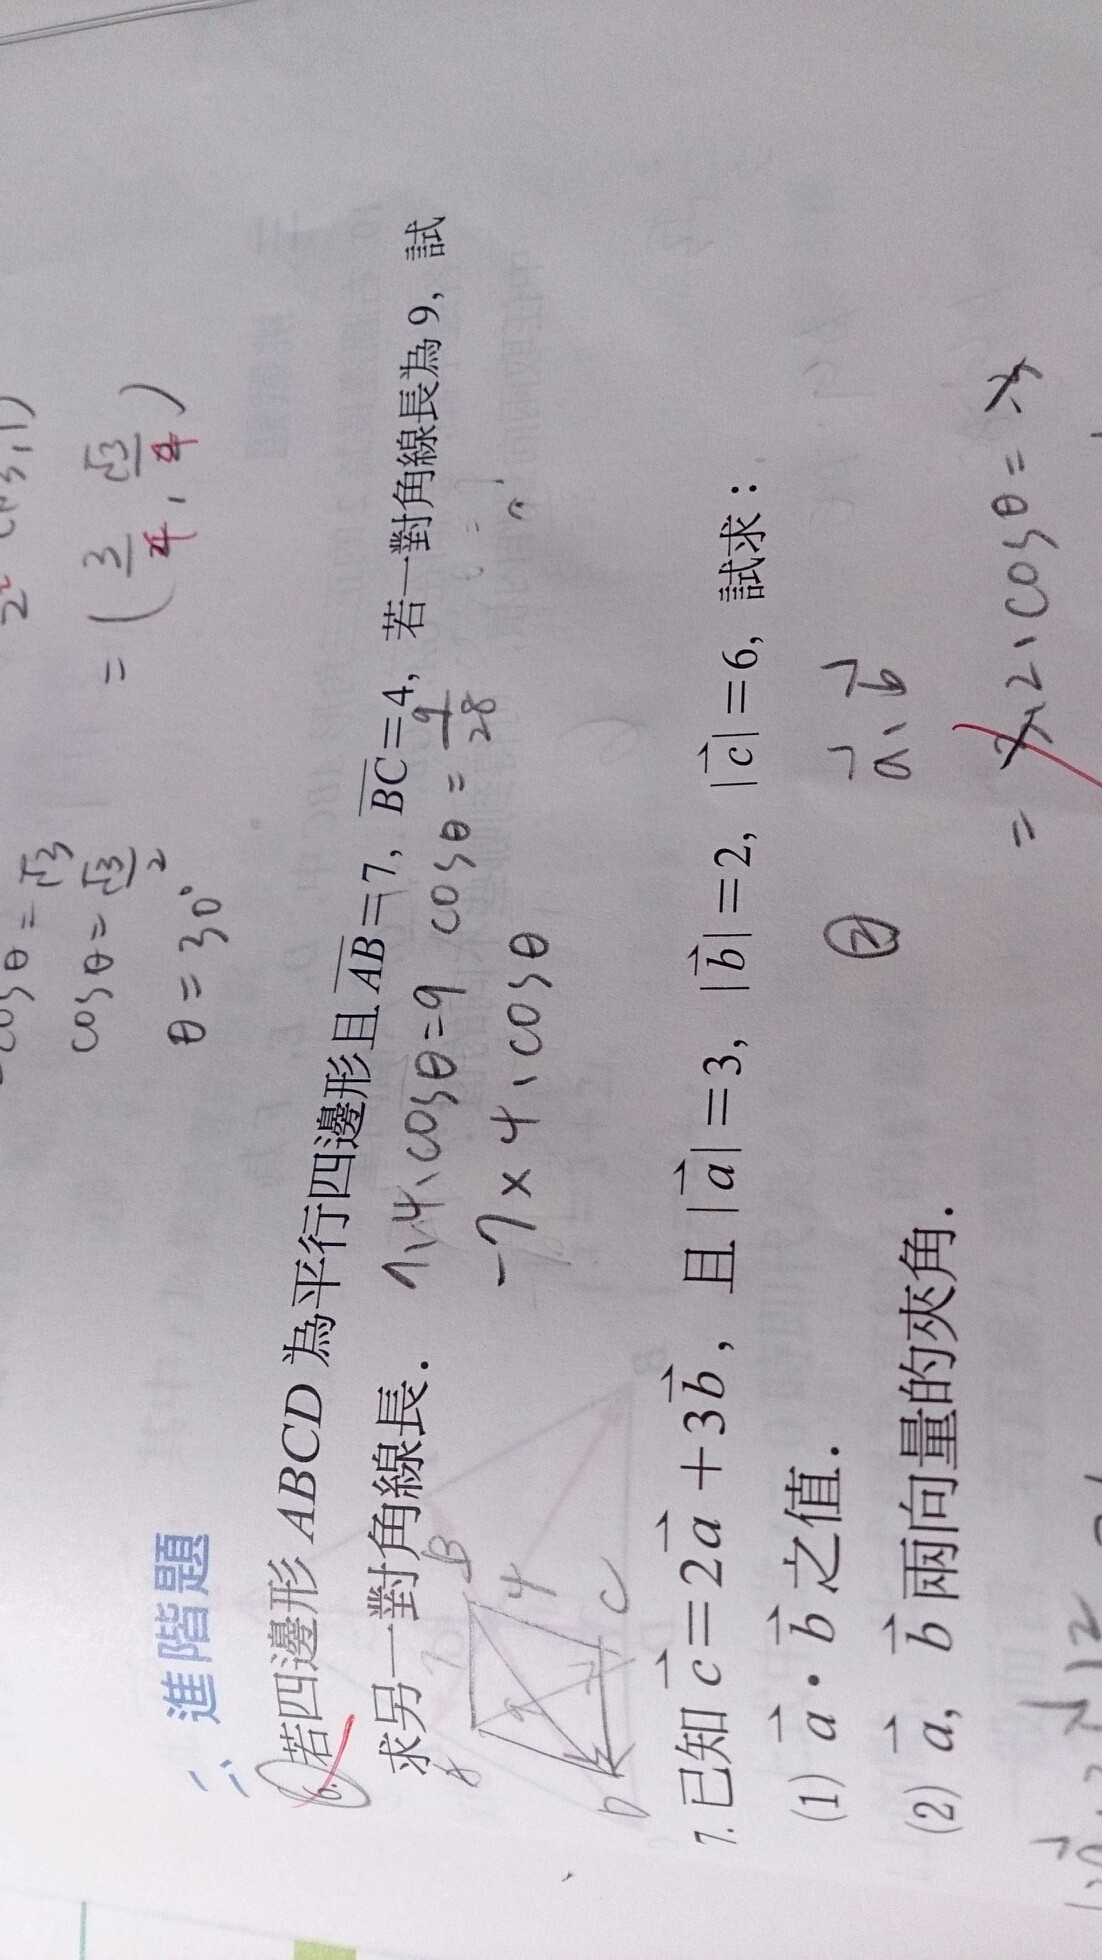 cosθ=√3
cosθ=√3/2
θ=30°
=(3/4, √3/4)
二、進階題
6. 若四邊形 ABCD 為平行四邊形且 AB=7, BC=4, 若一對角線長為 9, 試
求另一對角線長.
7、4、cosθ=9 cosθ=9/28
-7×4、cosθ
A B
9 4
D C
7. 已知 c⃗=2a⃗+3b⃗, 且 |a⃗|=3, |b⃗|=2, |c⃗|=6, 試求:
(1) a⃗·b⃗ 之值.
(2) a⃗, b⃗ 兩向量的夾角.
② a⃗、b⃗